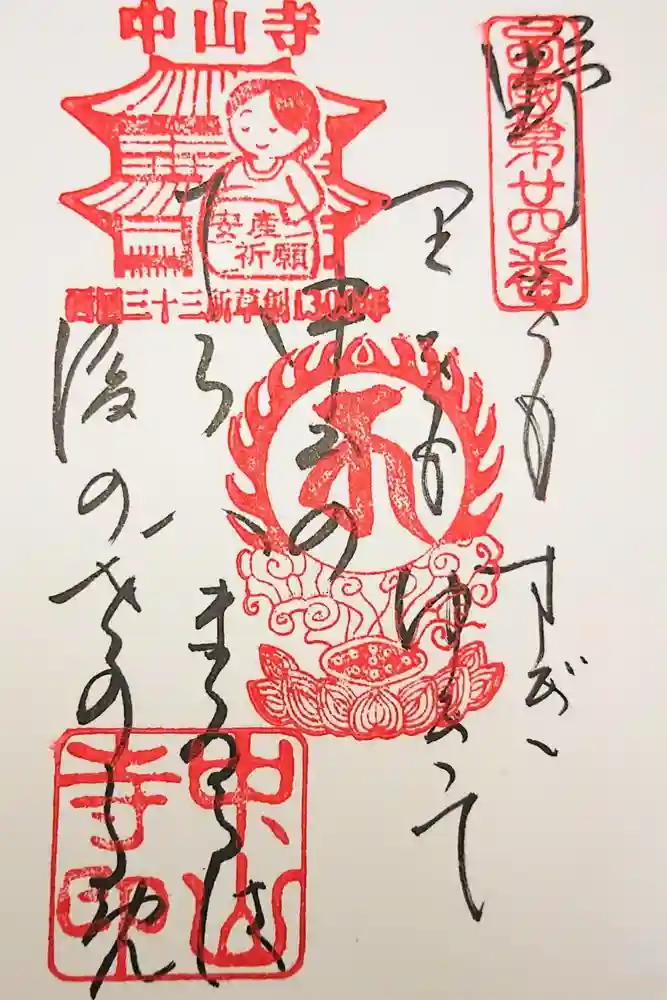 西國第廿四番
野をもすぎ
里をもゆきて
中山の
寺へまいるは
後の世のため
中山寺
安産
祈願
西国三十三所草創1300年
中山
寺印